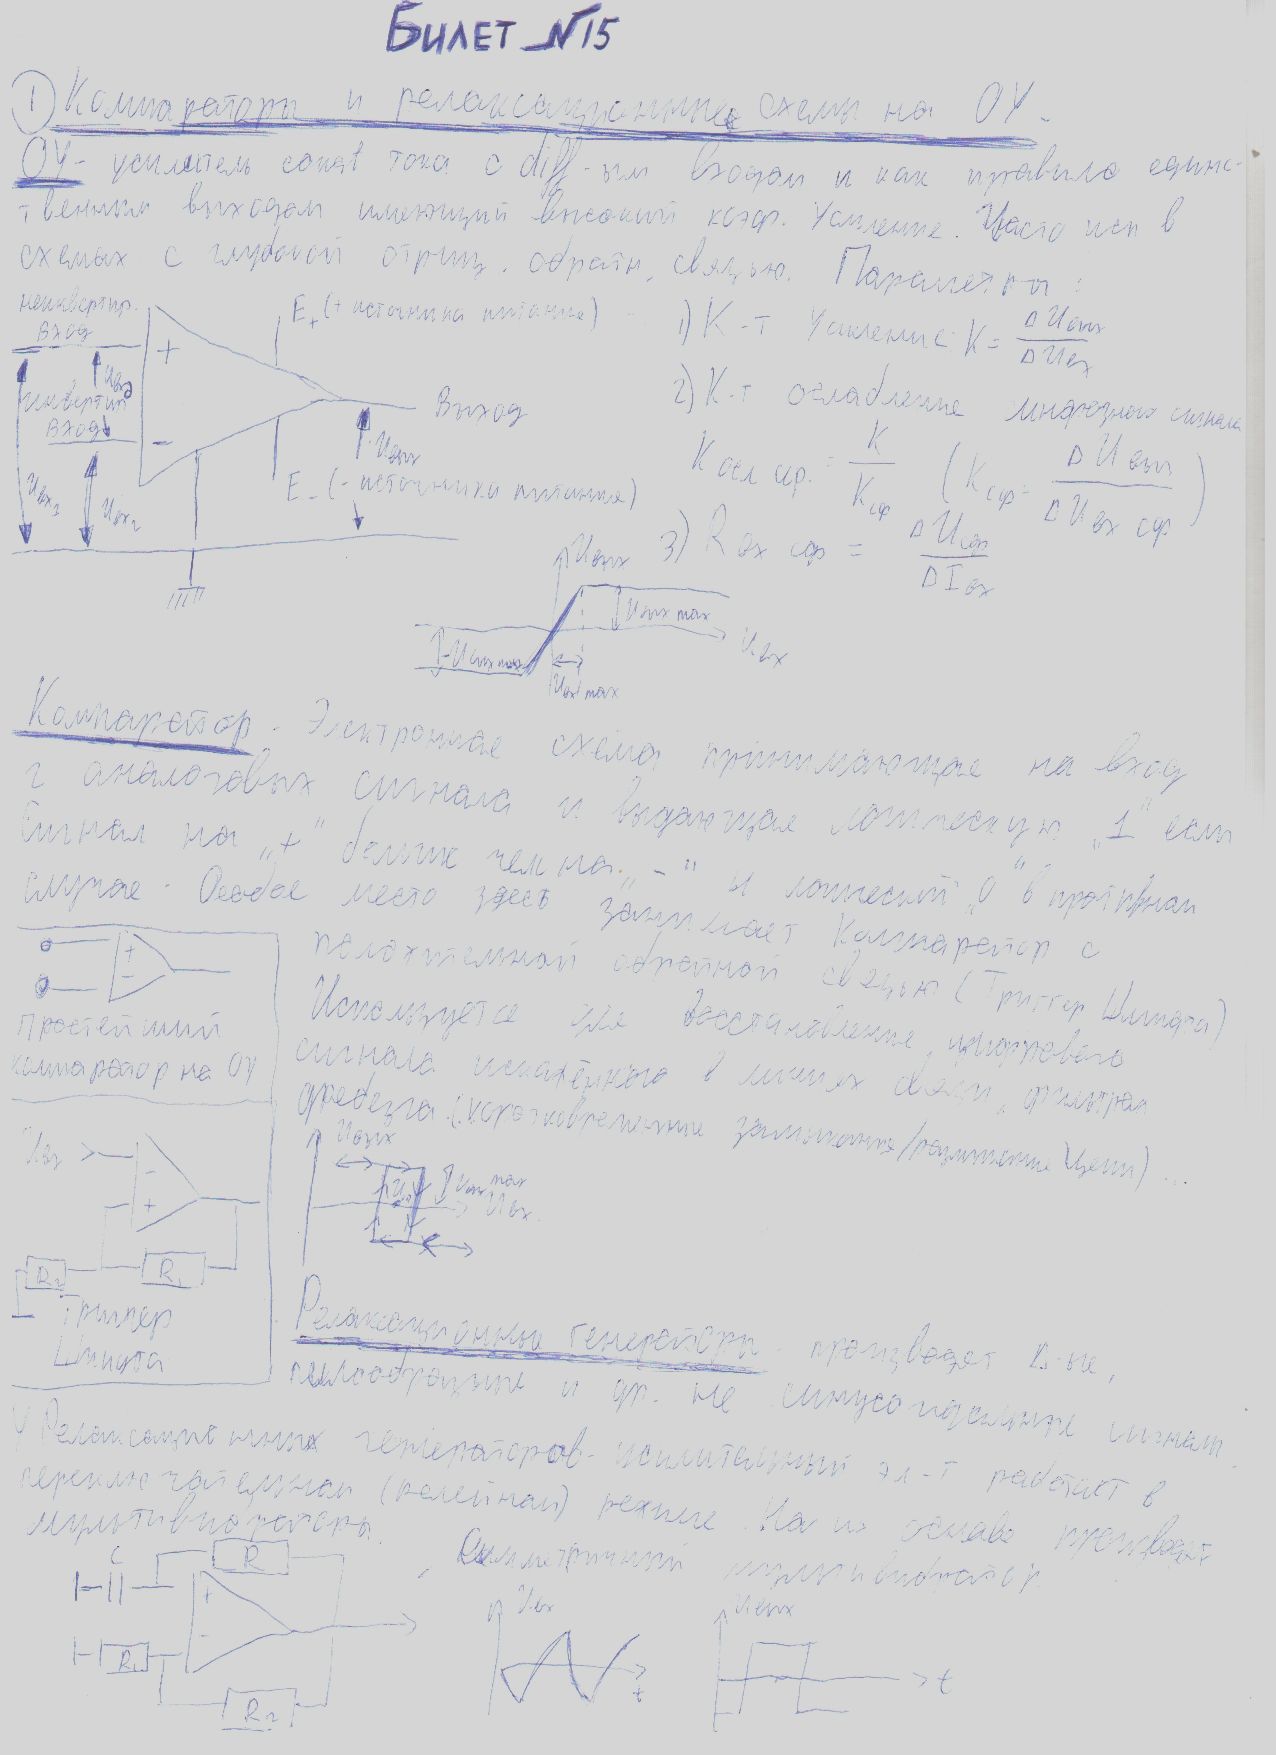 БИЛЕТ №15
① Компараторы и релаксационные схемы на ОУ.
ОУ - усилитель тока с diff-ым входом и как правило единс-
твенным выходом имеющий высокий коэф. Усиление. Часто исп в
схемах с глубокой отриц. обратн. связью. Параметры:
неинвертир.
вход
E+ (+ источника питание)
1) К-т Усиление K = ΔUвых / ΔUвх
+
инвертир
вход
Выход
2) К-т ослабление синфазного сигнала
-
Uвых
Kосл сф. = K / Kсф (Kсф = ΔUвых / ΔUвх сф)
E- (- источника питания)
Uвх1
Uвх2
3) Rвх сф = ΔUсф / ΔIвх
Uвых
Uвых max
-Uвых max
Uвх
Uвх max
Компаратор - Электронная схема принимающае на вход
2 аналоговых сигнала и выдающая логическую "1" если
Сигнал на "+" больше чем на "-" и логический "0" в противном
случае. Особое место здесь занимает Компаратор с
положительной обратной связью (Триггер Шмидта)
Используется для восстановление цифрового
сигнала искажённого в линиях связи, фильтрам
дребезга (кратковременные замыкание/размыкание цепи) ...
+
-
Простейший
компаратор на ОУ
Uвх
-
+
R2
R1
Триггер
Шмидта
Uвых
Uвых max
Uвх
Релаксационные генераторы - производят Δ-ые,
пилообразные и др. не синусоидальные сигналы.
У Релаксационных генераторов - усилительный эл-т работает в
переключательном (релейном) режиме. На их основе производят
мультивибраторы.
Симметричный мультивибратор.
C
R
+
-
R1
R2
Uвх
t
Uвых
t